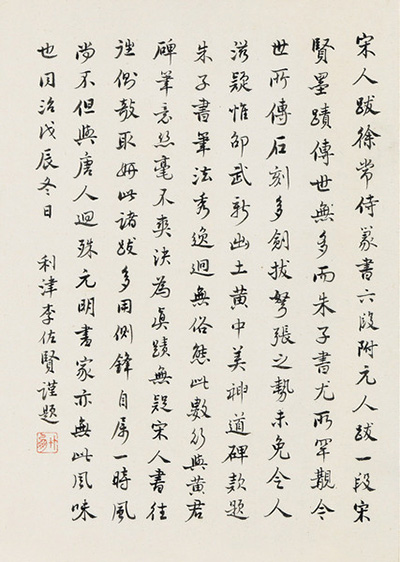 宋人跋徐常侍篆書六段附元人跋一段宋
賢墨蹟傳世無多而朱子書尤所罕覯今
世所傳石刻多劍拔弩張之勢未免令人
滋疑惟邵武新出土黃中美神道碑款題
朱子書筆法秀逸迥無俗態此數行與黃君
碑筆意絲毫不爽決為真蹟無疑宋人書往
往側敧取妍此諸跋多用側鋒自屬一時風
尚不但與唐人迥殊元明書家亦無此風味
也同治戊辰冬日 利津李佐賢謹題